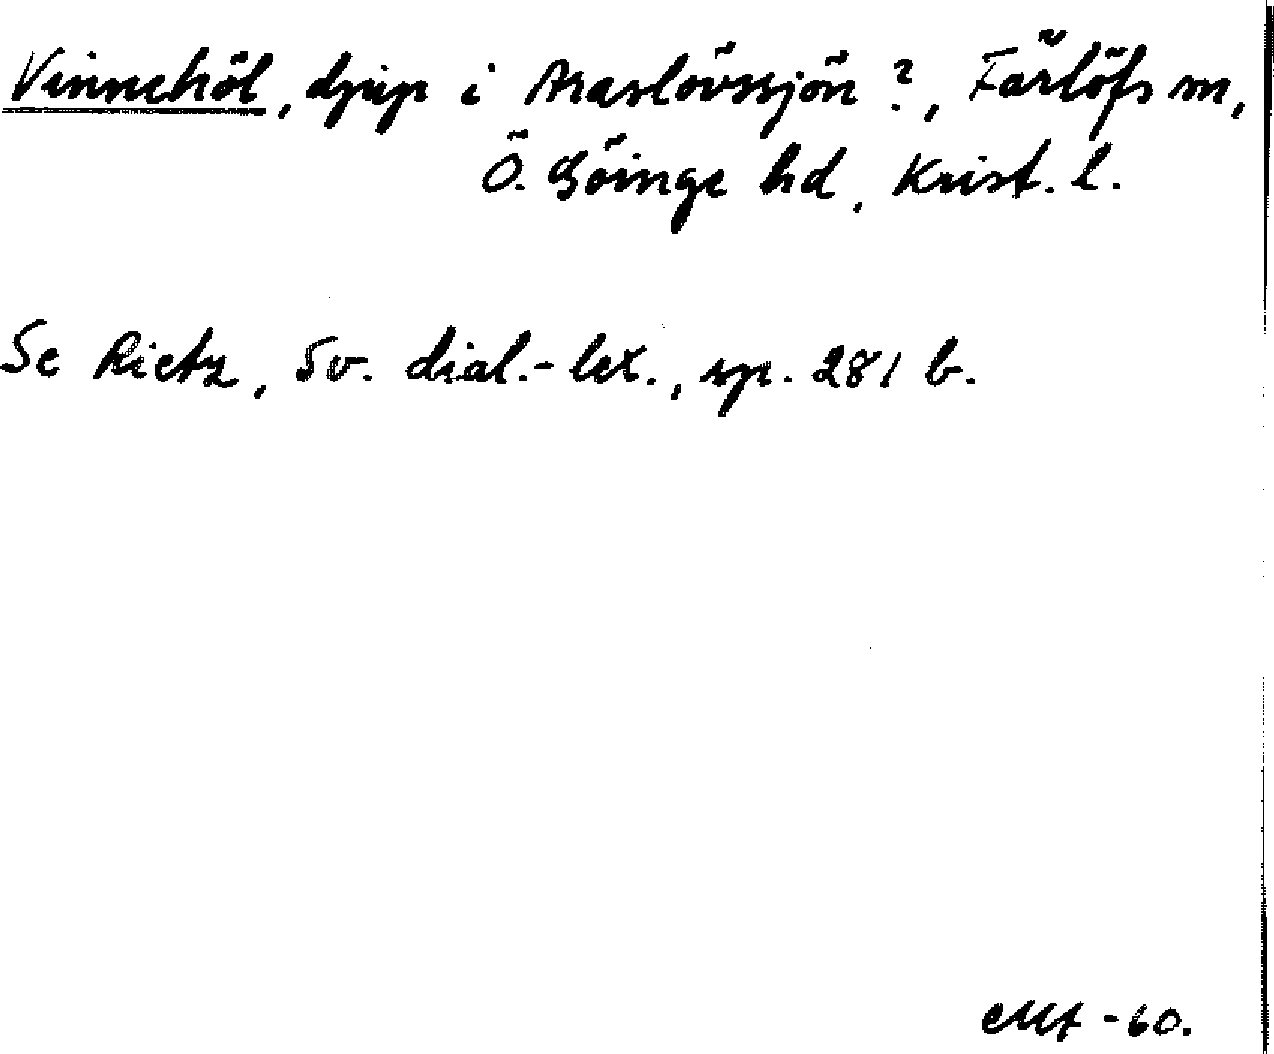 Vinnehöl, djup i Araslövssjön ?, Färlöfs sn,
Ö. Göinge hd, Krist. l.
Se Rietz, Sv. dial.-lex., sp. 281 b.
-60.